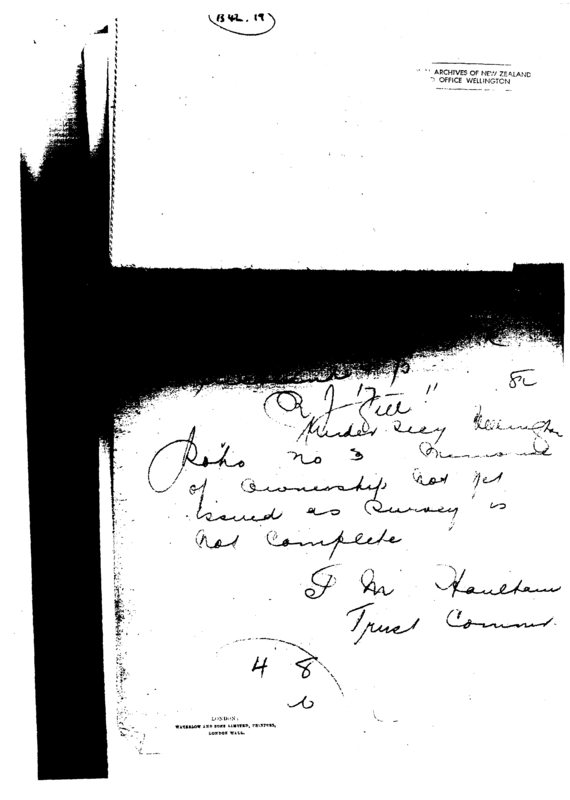 B42.19
ARCHIVES OF NEW ZEALAND
OFFICE WELLINGTON
R J "Gill"
Under Secy Wellington
Roho no 3
of Ownership not yet
issued as Survey is
not Complete
T M Haultain
Trust Commr.
4 8
LONDON:
WATERLOW AND SONS LIMITED, PRINTERS,
LONDON WALL.